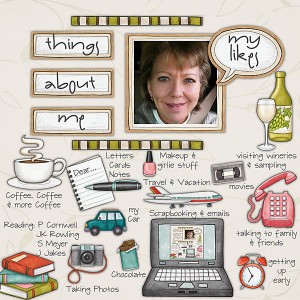 things
about
me
my
likes
Dear...
Letters
Cards
Notes
Makeup &
girlie stuff
visiting wineries
& sampling
Coffee, Coffee
& more Coffee
Travel & Vacation
movies
Reading: P Cornwell
JK Rowling
S Meyer
J Jakes
my
Car
Scrapbooking & emails
talking to family
& friends
Taking Photos
Chocolate
getting
up
early